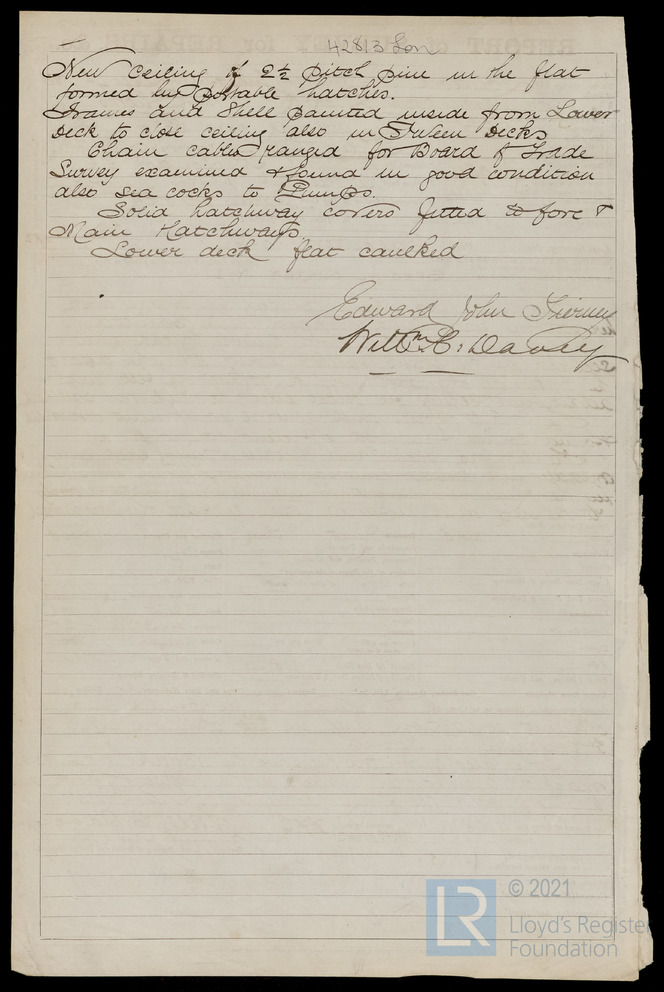 42813 Lon
New ceiling of 2½ pitch pine in the flat
formed by portable hatches.
Frames and Shell painted inside from Lower
Deck to close ceiling also in Tween Decks
Chain cables ranged for Board of Trade
Survey examined & found in good condition
also sea cocks to Pumps.
Solid hatchway covers fitted to fore &
Main Hatchways
Lower deck flat caulked
Edward John Tierney
Willm. C. Davey
LR
© 2021
Lloyd's Register
Foundation